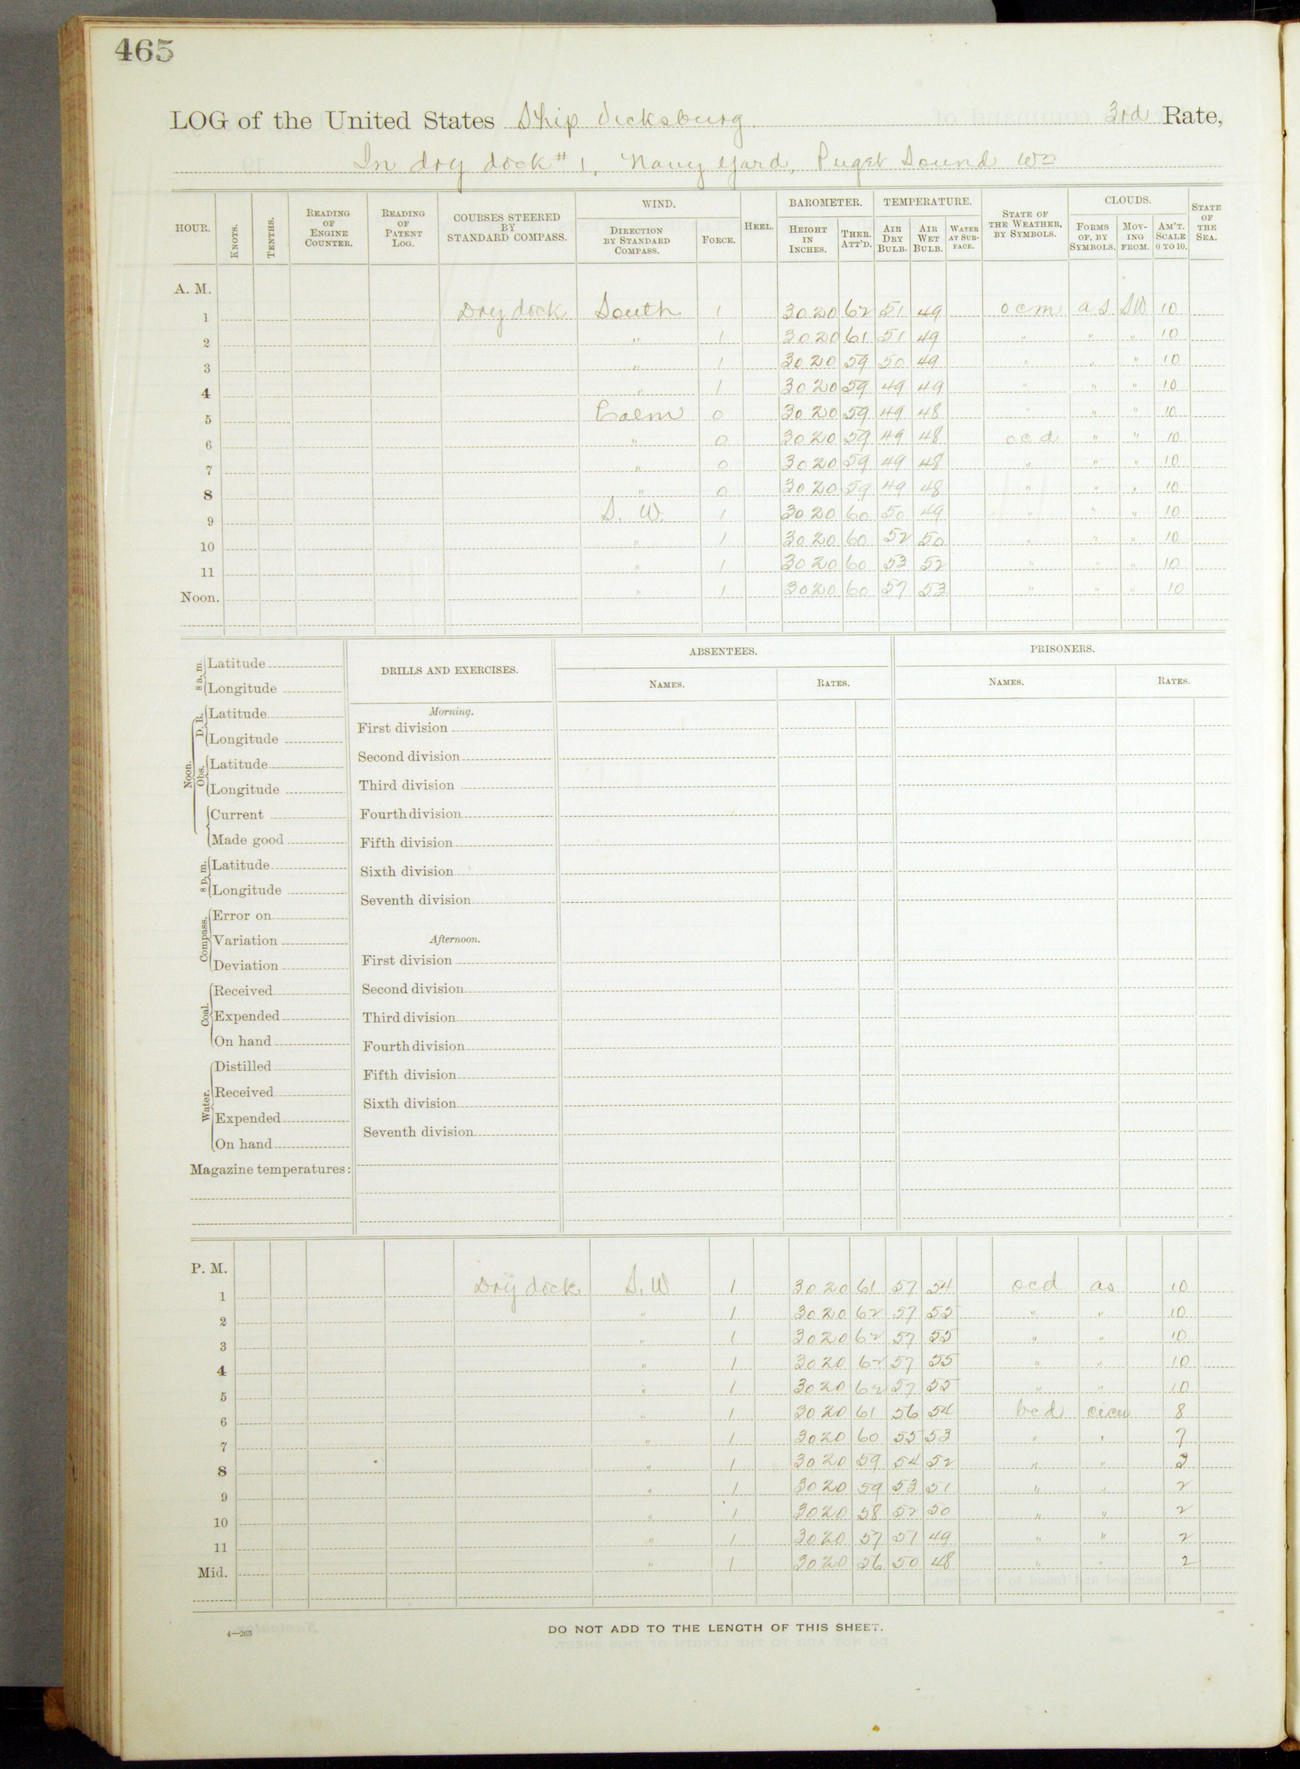 465
LOG of the United States Ship Vicksburg 3rd Rate,
In dry dock #1, Navy Yard, Puget Sound Wn
HOUR. KNOTS. TENTHS. READING OF ENGINE COUNTER. READING OF PATENT LOG. COURSES STEERED BY STANDARD COMPASS. WIND. DIRECTION BY STANDARD COMPASS. FORCE. HEEL. BAROMETER. HEIGHT IN INCHES. THER. ATT'D. TEMPERATURE. AIR DRY BULB. AIR WET BULB. WATER AT SURFACE. STATE OF THE WEATHER, BY SYMBOLS. CLOUDS. FORMS OF, BY SYMBOLS. MOVING FROM. AM'T. SCALE 0 TO 10. STATE OF THE SEA.
A. M.
1 Dry dock South 1 30 20 62 51 49 ocm a s SW 10
2 " 1 30 20 61 51 49 " " " 10
3 " 1 30 20 59 50 49 " " " 10
4 " 1 30 20 59 49 49 " " " 10
5 Calm 0 30 20 59 49 48 " " " 10
6 " 0 30 20 59 49 48 ocd " " 10
7 " 0 30 20 59 49 48 " " " 10
8 " 0 30 20 59 49 48 " " " 10
9 S. W. 1 30 20 60 50 49 " " " 10
10 " 1 30 20 60 52 50 " " " 10
11 " 1 30 20 60 53 52 " " " 10
Noon. " 1 30 20 60 57 53 " " " 10
8 a. m. Latitude
Longitude
Noon. D. R. Latitude
Longitude
Obs. Latitude
Longitude
Current
Made good
8 p. m. Latitude
Longitude
Compass. Error on
Variation
Deviation
Coal. Received
Expended
On hand
Water. Distilled
Received
Expended
On hand
Magazine temperatures:
DRILLS AND EXERCISES.
Morning.
First division
Second division
Third division
Fourth division
Fifth division
Sixth division
Seventh division
Afternoon.
First division
Second division
Third division
Fourth division
Fifth division
Sixth division
Seventh division
ABSENTEES.
NAMES. RATES.
PRISONERS.
NAMES. RATES.
P. M.
1 Dry dock S. W 1 30 20 61 57 54 ocd as 10
2 " 1 30 20 62 57 55 " " 10
3 " 1 30 20 62 57 55 " " 10
4 " 1 30 20 62 57 55 " " 10
5 " 1 30 20 62 57 55 " " 10
6 " 1 30 20 61 56 54 bcd cicu 8
7 " 1 30 20 60 55 53 " " 7
8 " 1 30 20 59 54 52 " " 3
9 " 1 30 20 59 53 51 " " 2
10 " 1 30 20 58 52 50 " " 2
11 " 1 30 20 57 51 49 " " 2
Mid. " 1 30 20 56 50 48 " " 2
4—263
DO NOT ADD TO THE LENGTH OF THIS SHEET.